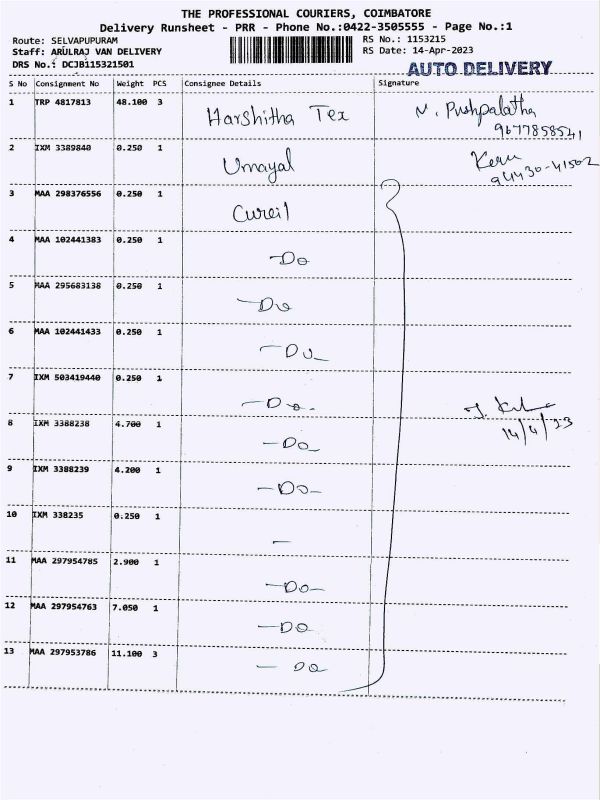 THE PROFESSIONAL COURIERS, COIMBATORE
Delivery Runsheet - PRR - Phone No.:0422-3505555 - Page No.:1
Route: SELVAPUPURAM RS No.: 1153215
Staff: ARULRAJ VAN DELIVERY RS Date: 14-Apr-2023
DRS No.: DCJB115321501 AUTO DELIVERY
S No Consignment No Weight PCS Consignee Details Signature
1 TRP 4817813 48.100 3 Harshitha Tex N. Pushpalatha
9677858541
2 IXM 3389840 0.250 1 Umayal
94430-41502
3 MAA 298376556 0.250 1 Cureil
4 MAA 102441383 0.250 1 -Do
5 MAA 295683138 0.250 1 -Do
6 MAA 102441433 0.250 1 -Do-
7 IXM 503419440 0.250 1 -Do-
8 IXM 3388238 4.700 1 -Do-
14/4/23
9 IXM 3388239 4.200 1 -Do-
10 IXM 338235 0.250 1 -
11 MAA 297954785 2.900 1 -Do-
12 MAA 297954763 7.050 1 -Do
13 MAA 297953786 11.100 3 - Do